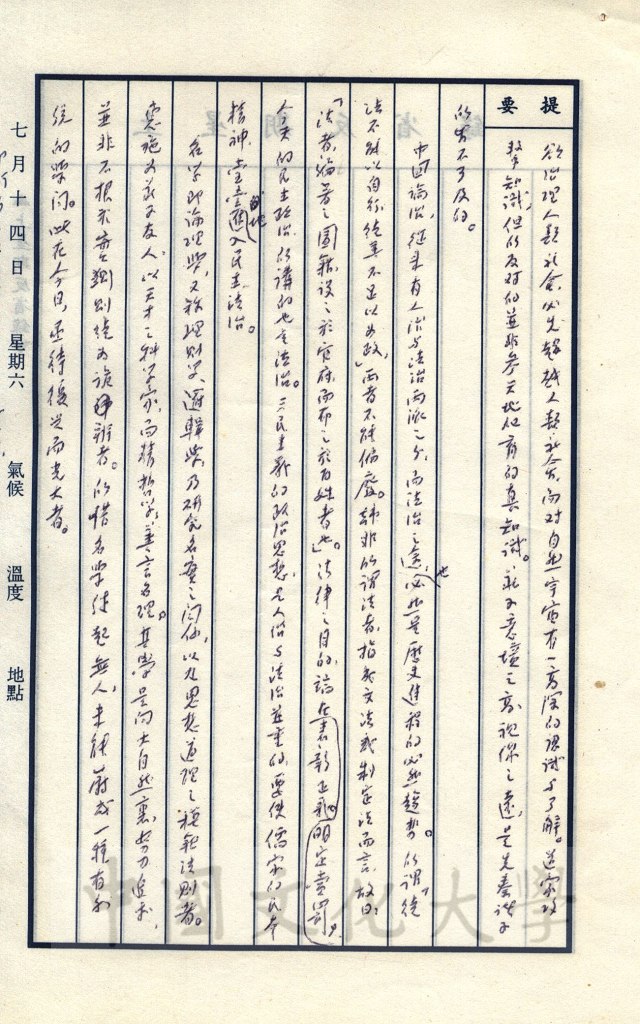 提要
欲治理人類社會，必先超越人類社會，而對自然宇宙有一高深的認識與了解。道家攻
擊知識，但所反對的並非參天地化育的真知識。意境之高，視線之遠，是先秦諸子
所望不及的。
中國論治，從來有人治與法治兩派之分，而法治之途，必然是歷史進程的必然趨勢。所謂「徒
法不能以自行，徒善不足以為政」，兩者不能偏廢。韓非所謂法者，指成文法或制定法而言，故曰：
「法者，編著之圖籍，設之於官府，而布之於百姓者也」。法律之目的，論在表彰正義，明定賞罰。
今天的民主政治，所講的也是法治。三民主義的政治思想，是人治與法治並重的，要使儒家的民本
精神，堂堂進入民主法治。
名學即論理學，又稱理則學、邏輯學，乃研究名實之關係，以九思想道理之模範法則者。
惠施為莊子友人，以天才之科學家，而精哲學，善言名理。其學是向大自然裏，努力追求，
並非不根求實獨別繞為詭辯者。所惜名學後起無人，未能蔚成一種有系
統的學問。此在今日，亟待復興而光大者。
七月十四日 星期六 氣候 溫度 地點
中國文化大學